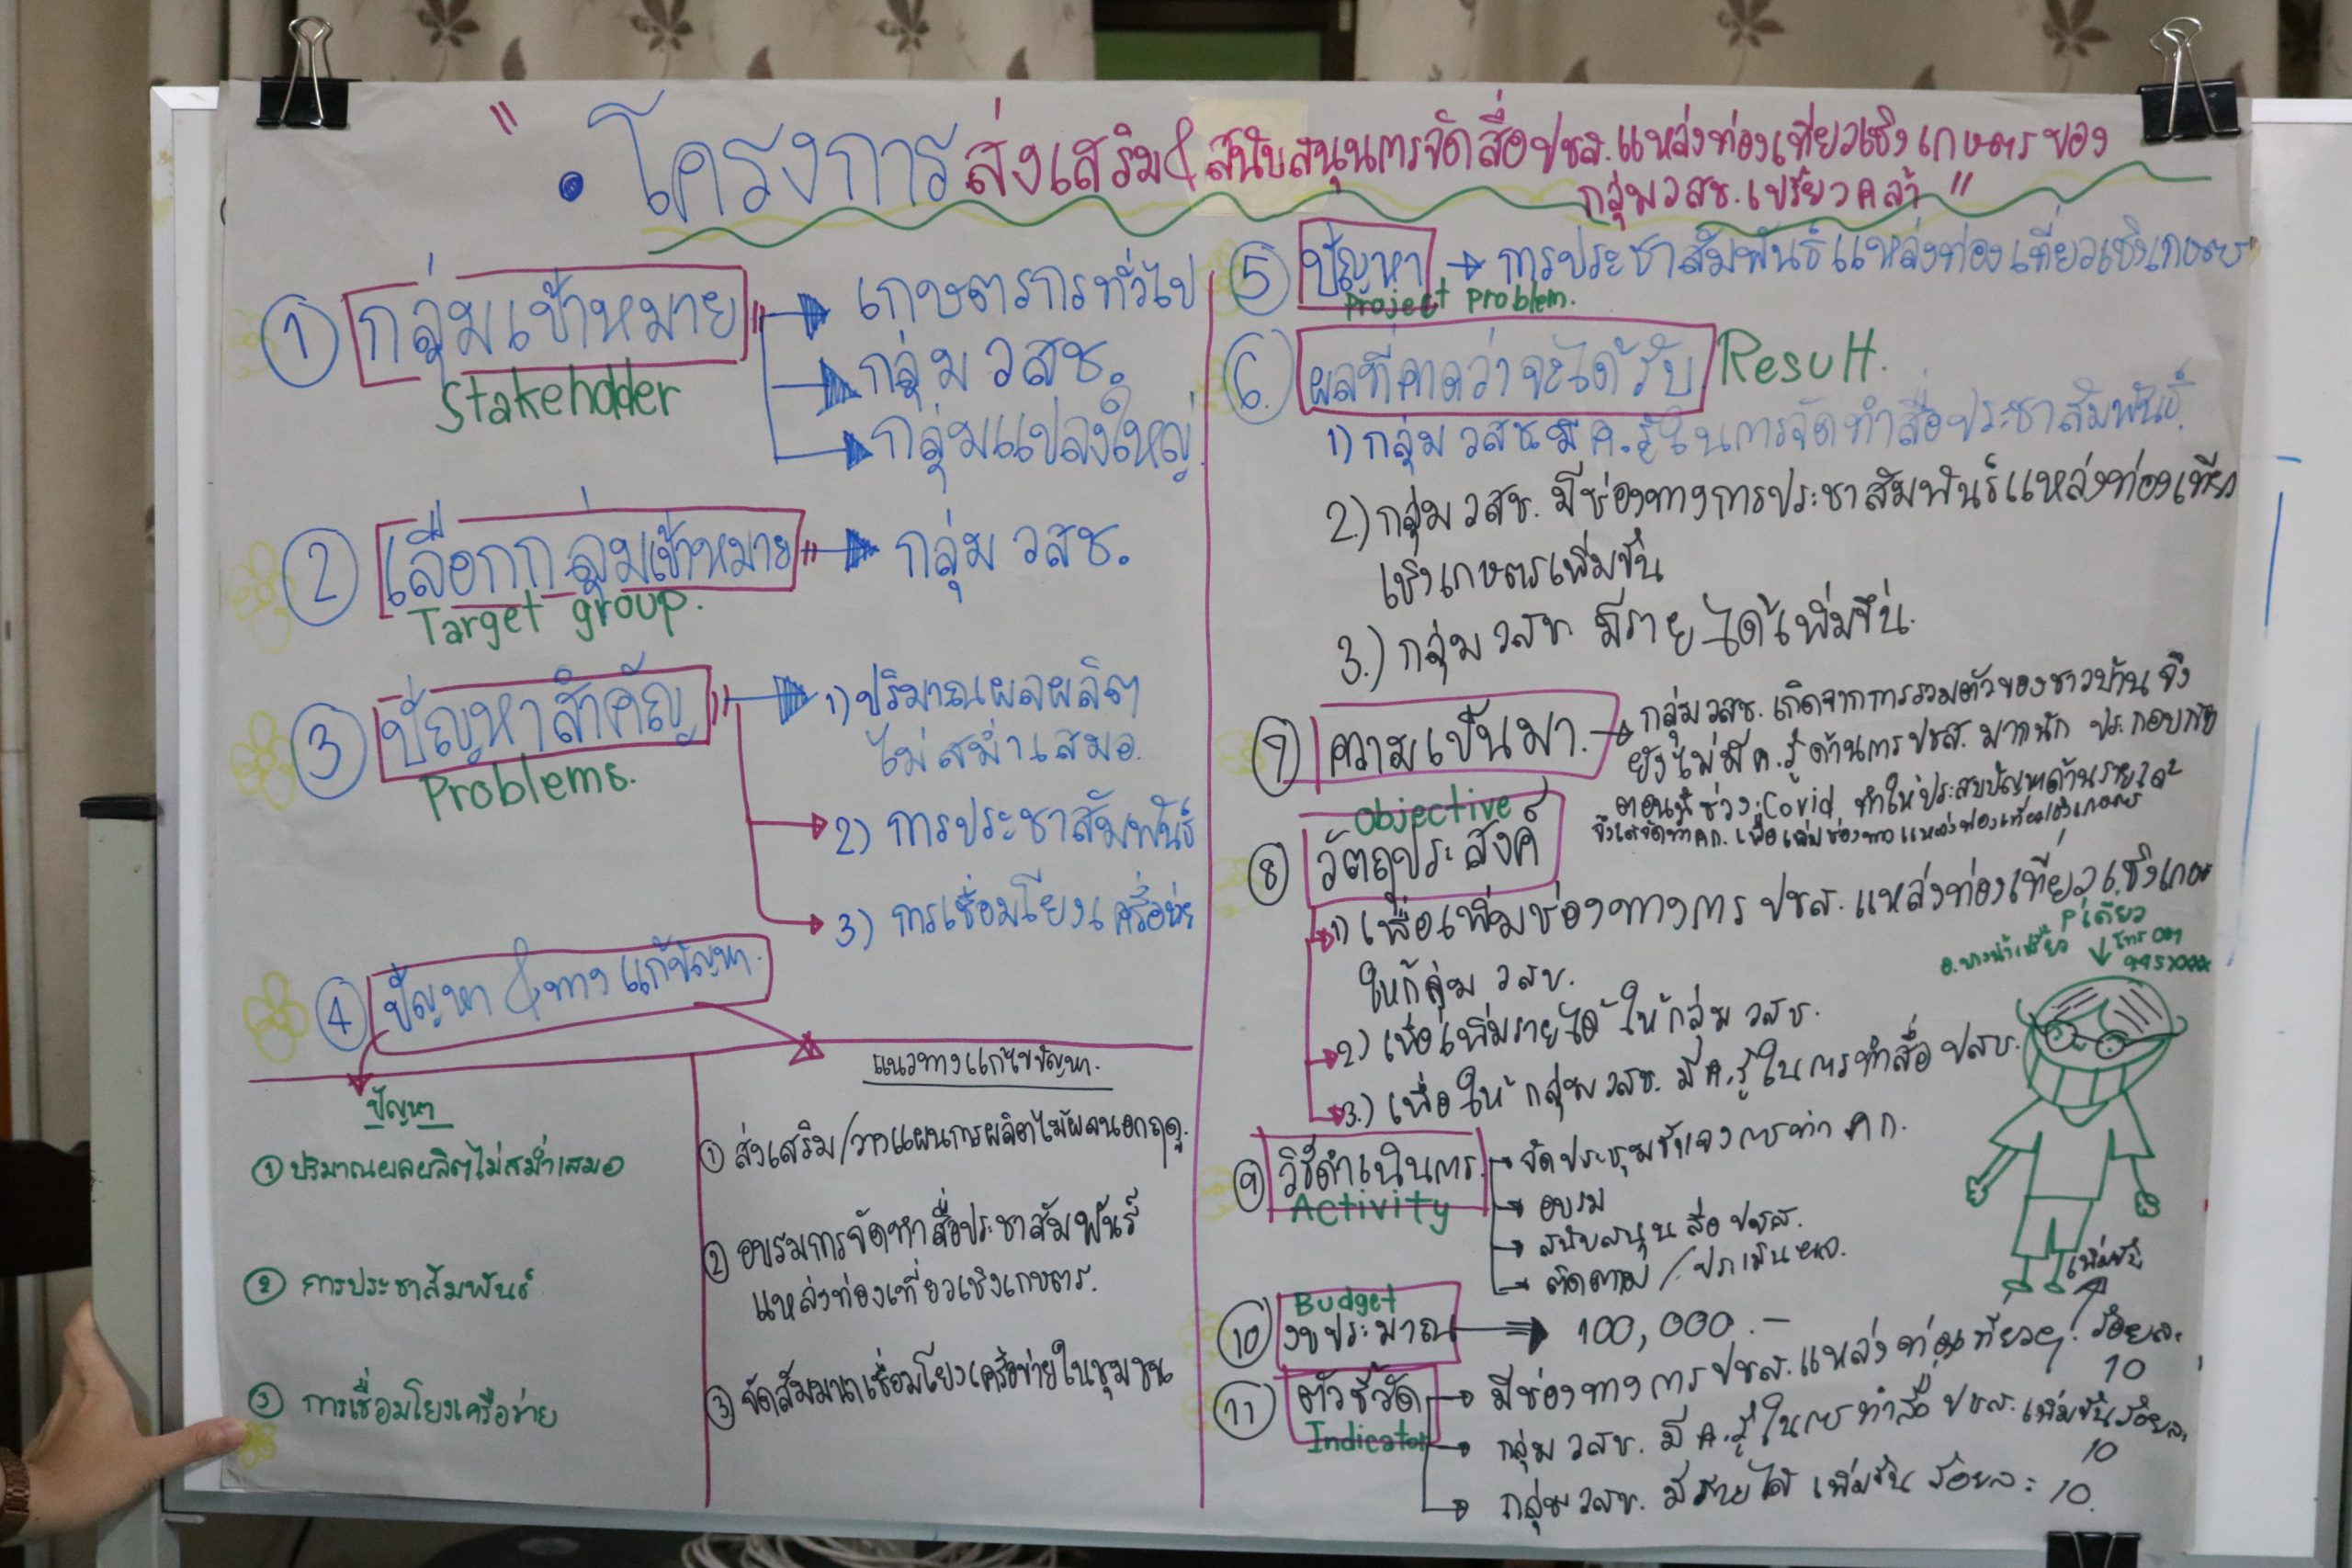 " • โครงการส่งเสริม & สนับสนุนการจัดสื่อปชส.แหล่งท่องเที่ยวเชิงเกษตรของ
กลุ่มวสช.เปรี้ยวคล้า "
① กลุ่มเป้าหมาย → เกษตรกรทั่วไป
Stakeholder → กลุ่ม วสช.
→ กลุ่มแปลงใหญ่
② เลือกกลุ่มเป้าหมาย → กลุ่ม วสช.
Target group.
③ ปัญหาสำคัญ → 1) ปริมาณผลผลิต
ไม่สม่ำเสมอ.
Problems.
→ 2) การประชาสัมพันธ์
→ 3) การเชื่อมโยงเครือข่าย
④ ปัญหา & ทางแก้ปัญหา.
ปัญหา
① ปริมาณผลผลิตไม่สม่ำเสมอ
② การประชาสัมพันธ์
③ การเชื่อมโยงเครือข่าย
แนวทางแก้ไขปัญหา.
① ส่งเสริม/วางแผนการผลิตไม้ผลนอกฤดู.
② อบรมการจัดทำสื่อประชาสัมพันธ์
แหล่งท่องเที่ยวเชิงเกษตร.
③ จัดสัมมนาเชื่อมโยงเครือข่ายในชุมชน
⑤ ปัญหา → การประชาสัมพันธ์แหล่งท่องเที่ยวเชิงเกษตร
Project Problem.
⑥ ผลที่คาดว่าจะได้รับ Result.
1) กลุ่ม วสช มี ค.รู้ในการจัดทำสื่อประชาสัมพันธ์.
2.) กลุ่ม วสช. มีช่องทางการประชาสัมพันธ์แหล่งท่องเที่ยว
เชิงเกษตรเพิ่มขึ้น
3.) กลุ่ม วสช มีรายได้เพิ่มขึ้น.
⑦ ความเป็นมา. → กลุ่มวสช. เกิดจากการรวมตัวของชาวบ้าน จึง
ยังไม่มี ค.รู้ ด้านการ ปชส. มากนัก ประกอบกับ
ตอนนี้ช่วง Covid ทำให้ประสบปัญหาด้านรายได้
จึงได้จัดทำ คก. เพื่อเพิ่มช่องทางแหล่งท่องเที่ยวเชิงเกษตร
Objective
⑧ วัตถุประสงค์
1) เพื่อเพิ่มช่องทางการ ปชส. แหล่งท่องเที่ยวเชิงเกษตร
ให้กลุ่ม วสช.
2) เพื่อเพิ่มรายได้ ให้กลุ่ม วสช.
3.) เพื่อให้ กลุ่ม วสช. มี ค.รู้ในการทำสื่อ ปสช.
P'เดียว
อ.บางน้ำเปรี้ยว
⑨ วิธีดำเนินการ → จัดประชุมชี้แจงการทำ คก.
Activity → อบรม
→ สนับสนุน สื่อ ปชส.
→ ติดตาม / ประเมินผล.
Budget
⑩ งบประมาณ → 100,000.-
เพิ่มขึ้น
⑪ ตัวชี้วัด → มีช่องทางการ ปชส. แหล่งท่องเที่ยวฯ ร้อยละ
10
Indicator → กลุ่ม วสช. มี ค.รู้ในการทำสื่อ ปชส. เพิ่มขึ้นร้อยละ
10
→ กลุ่ม วสช. มีรายได้ เพิ่มขึ้น ร้อยละ 10.